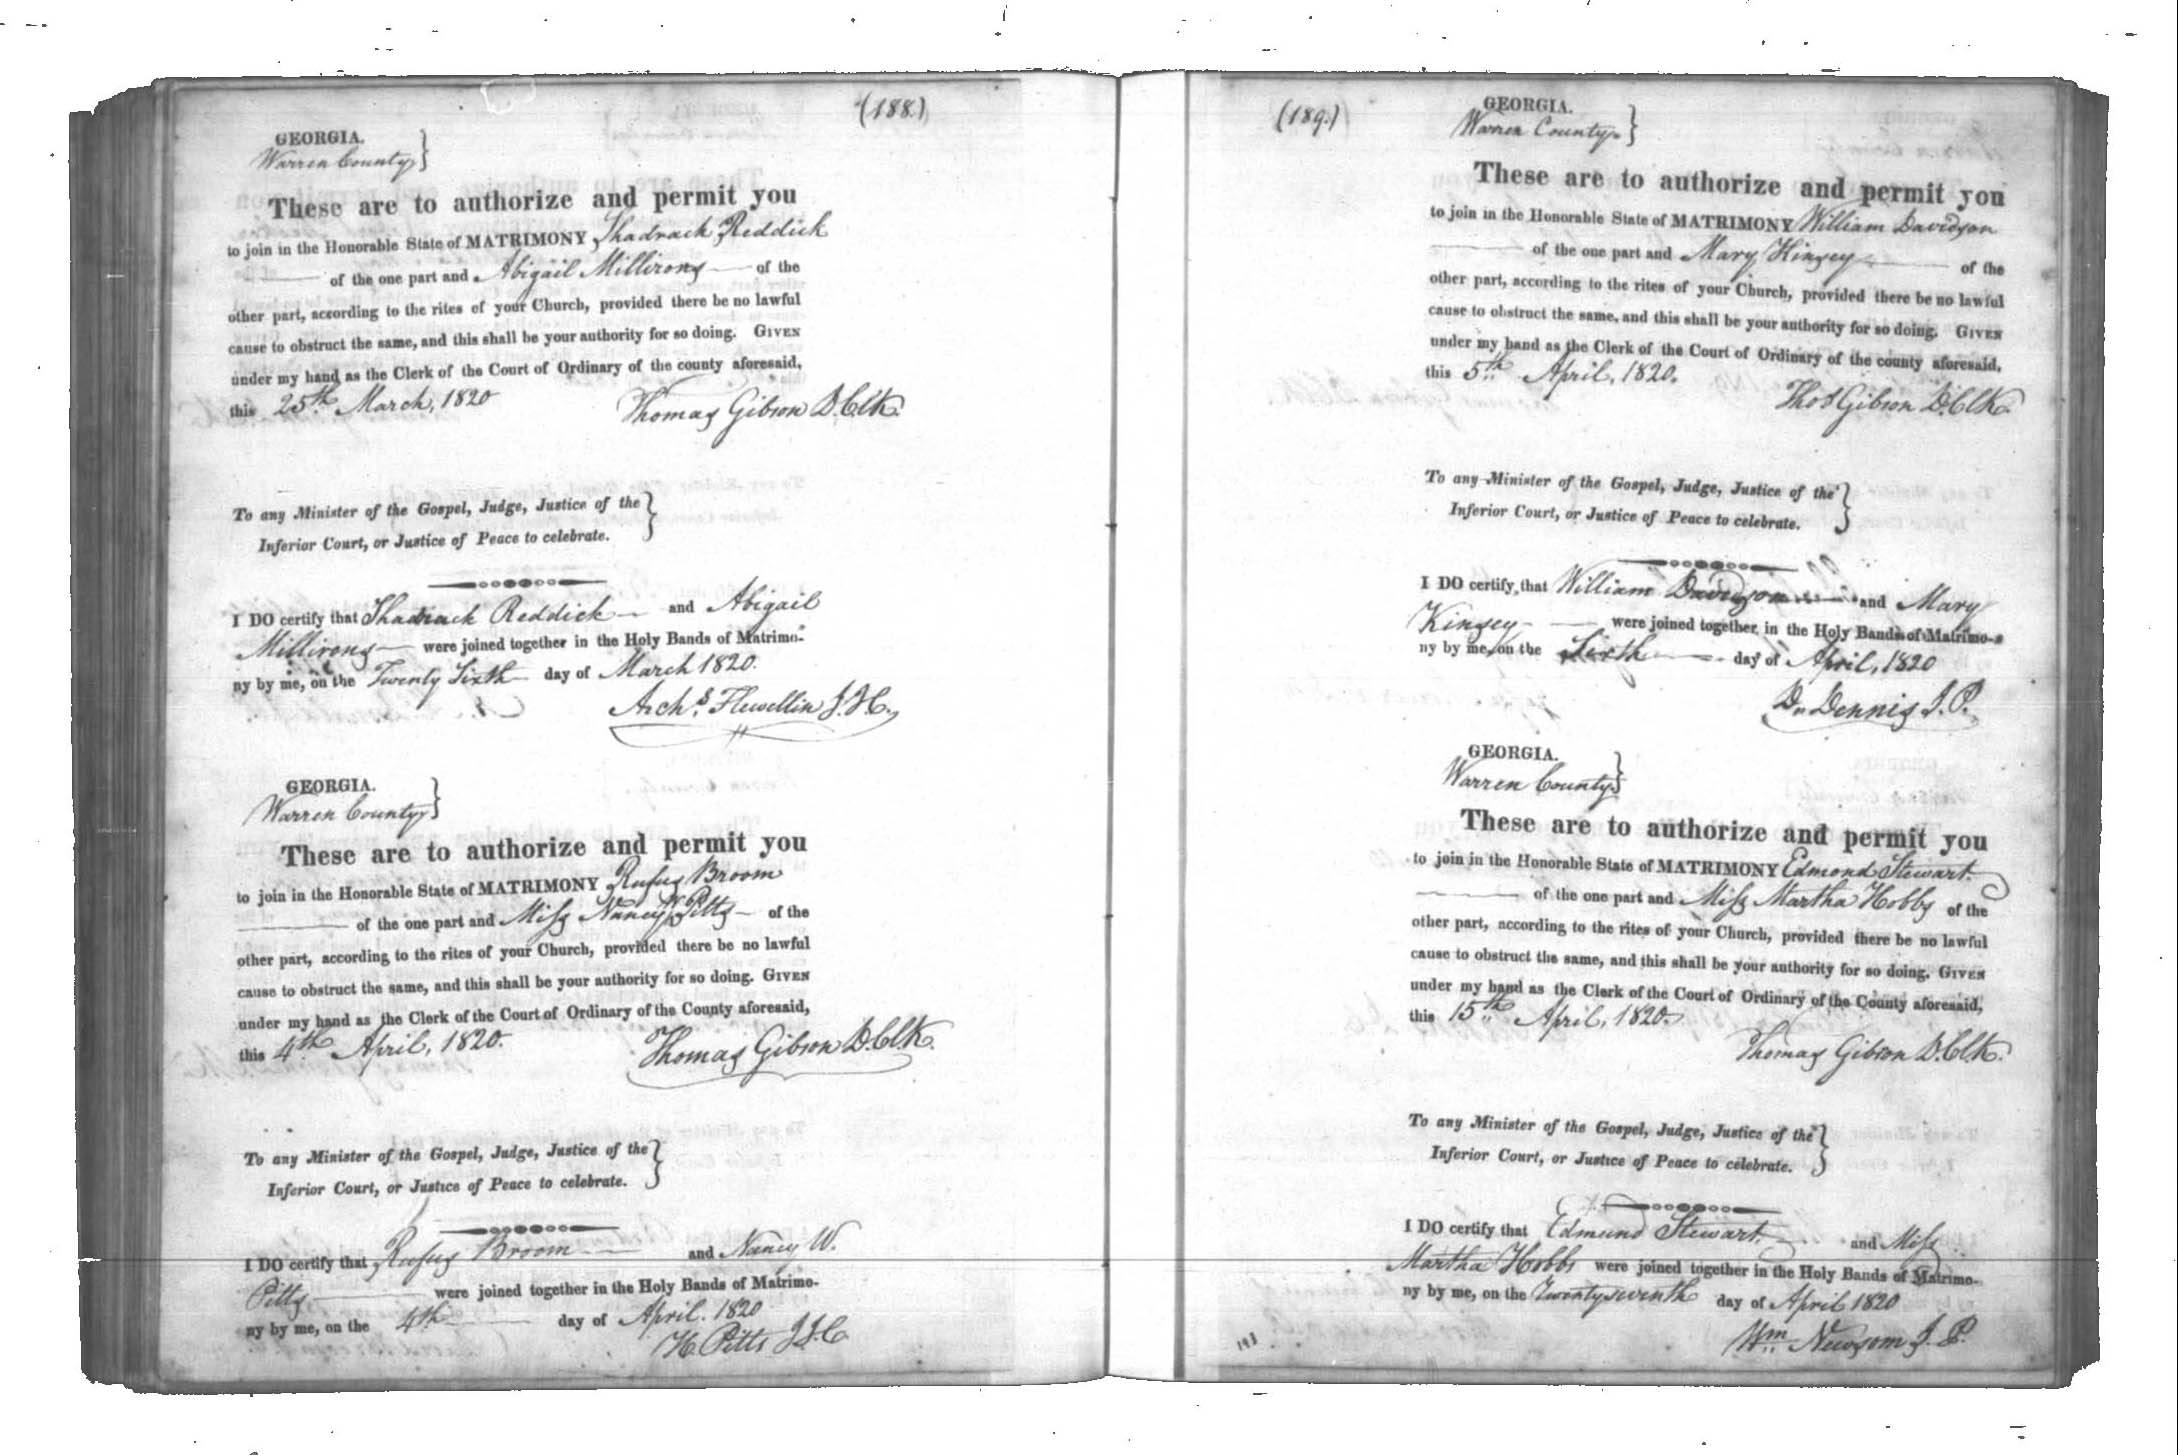 (188.)
GEORGIA.
Warren County }
These are to authorize and permit you
to join in the Honorable State of MATRIMONY Shadrach Reddick
of the one part and Abigail Millirons of the
other part, according to the rites of your Church, provided there be no lawful
cause to obstruct the same, and this shall be your authority for so doing. GIVEN
under my hand as the Clerk of the Court of Ordinary of the county aforesaid,
this 25th March, 1820
Thomas Gibson D.Clk.
To any Minister of the Gospel, Judge, Justice of the }
Inferior Court, or Justice of Peace to celebrate.
I DO certify that Shadrach Reddick and Abigail
Millirons were joined together in the Holy Bands of Matrimo-
ny by me, on the Twenty Sixth day of March 1820.
Archs. Flewellin J.I.C.
GEORGIA.
Warren County }
These are to authorize and permit you
to join in the Honorable State of MATRIMONY Rufus Broom
of the one part and Miss Nancy W Pitts of the
other part, according to the rites of your Church, provided there be no lawful
cause to obstruct the same, and this shall be your authority for so doing. GIVEN
under my hand as the Clerk of the Court of Ordinary of the County aforesaid,
this 4th April, 1820.
Thomas Gibson D.Clk.
To any Minister of the Gospel, Judge, Justice of the }
Inferior Court, or Justice of Peace to celebrate.
I DO certify that Rufus Broom and Nancy W.
Pitts were joined together in the Holy Bands of Matrimo-
ny by me, on the 4th day of April. 1820
H. Pitts J.I.C
(189.)
GEORGIA.
Warren County }
These are to authorize and permit you
to join in the Honorable State of MATRIMONY William Davidson
of the one part and Mary Kinsey of the
other part, according to the rites of your Church, provided there be no lawful
cause to obstruct the same, and this shall be your authority for so doing. GIVEN
under my hand as the Clerk of the Court of Ordinary of the county aforesaid,
this 5th April, 1820.
Thos Gibson D.Clk.
To any Minister of the Gospel, Judge, Justice of the }
Inferior Court, or Justice of Peace to celebrate.
I DO certify that William Davidson and Mary
Kinsey were joined together in the Holy Bands of Matrimo-
ny by me, on the Sixth day of April, 1820
Dn Dennis J.P.
GEORGIA.
Warren County }
These are to authorize and permit you
to join in the Honorable State of MATRIMONY Edmond Stewart
of the one part and Miss Martha Hobbs of the
other part, according to the rites of your Church, provided there be no lawful
cause to obstruct the same, and this shall be your authority for so doing. GIVEN
under my hand as the Clerk of the Court of Ordinary of the County aforesaid,
this 15th April, 1820
Thomas Gibson D.Clk.
To any Minister of the Gospel, Judge, Justice of the }
Inferior Court, or Justice of Peace to celebrate.
I DO certify that Edmund Stewart and Miss
Martha Hobbs were joined together in the Holy Bands of Matrimo-
ny by me, on the Twenty seventh day of April 1820
Wm Newsom J.P.